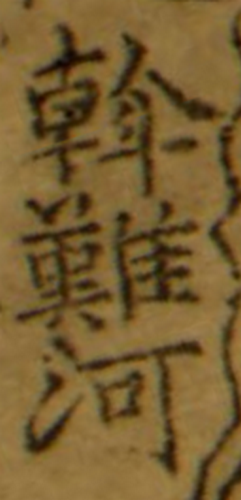 斡難河